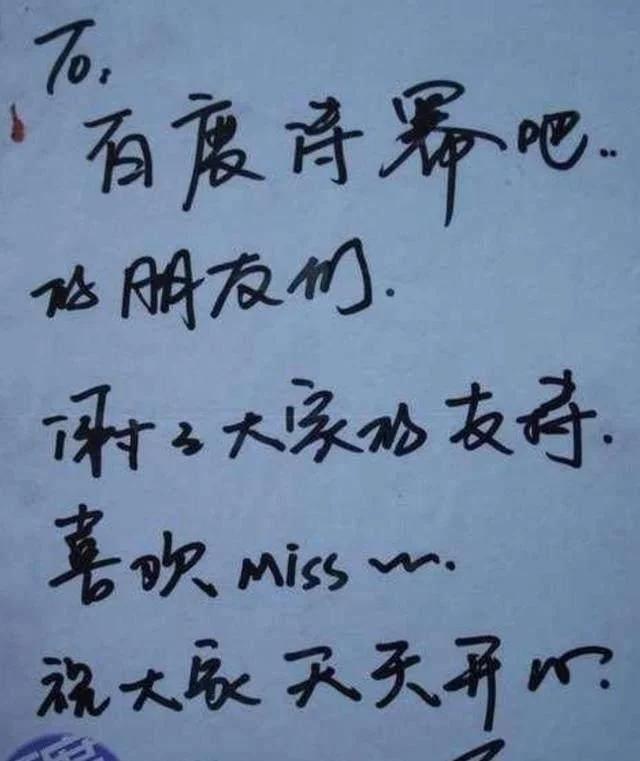 To:
百度诗幂吧..
的朋友们.
谢谢大家的支持.
喜欢Miss~~.
祝大家天天开心.